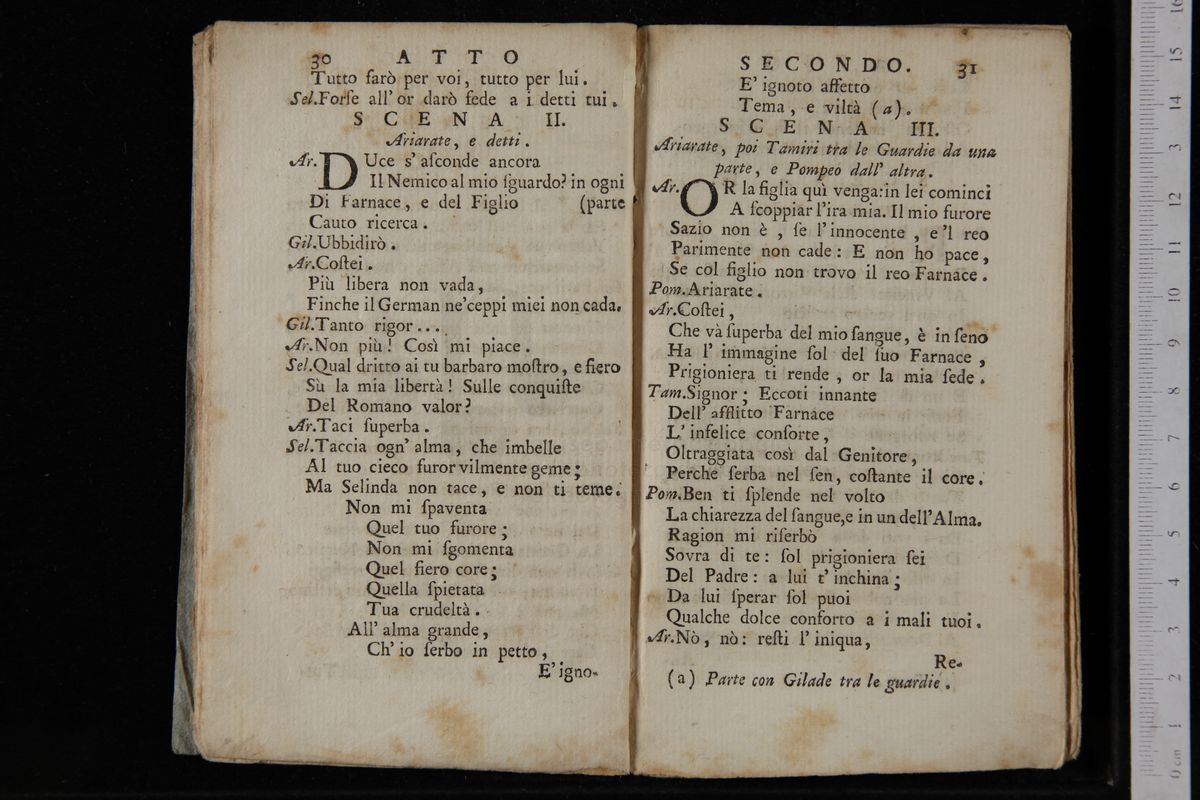 30 ATTO
Tutto farò per voi, tutto per lui.
Sel.Forſe all' or darò fede a i detti tui.
SCENA II.
Ariarate, e detti.
Ar. DUce s' aſconde ancora
Il Nemico al mio ſguardo? in ogni
Di Farnace, e del Figlio (parte
Cauto ricerca.
Gil.Ubbidirò.
Ar.Coſtei.
Più libera non vada,
Finche il German ne'ceppi miei non cada.
Gil.Tanto rigor...
Ar.Non più! Così mi piace.
Sel.Qual dritto ai tu barbaro moſtro, e fiero
Sù la mia libertà! Sulle conquiſte
Del Romano valor?
Ar.Taci ſuperba.
Sel.Taccia ogn' alma, che imbelle
Al tuo cieco furor vilmente geme;
Ma Selinda non tace, e non ti teme.
Non mi ſpaventa
Quel tuo furore;
Non mi ſgomenta
Quel fiero core;
Quella ſpietata
Tua crudeltà.
All' alma grande,
Ch' io ſerbo in petto,
E' igno-
SECONDO. 31
E' ignoto affetto
Tema, e viltà (a).
SCENA III.
Ariarate, poi Tamiri tra le Guardie da una
parte, e Pompeo dall' altra.
Ar. OR la figlia quì venga: in lei cominci
A ſcoppiar l'ira mia. Il mio furore
Sazio non è, ſe l'innocente, e 'l reo
Parimente non cade: E non ho pace,
Se col figlio non trovo il reo Farnace.
Pom.Ariarate.
Ar.Coſtei,
Che và ſuperba del mio ſangue, è in ſeno
Ha l' immagine ſol del ſuo Farnace,
Prigioniera ti rende, or la mia fede.
Tam.Signor; Eccoti innante
Dell' afflitto Farnace
L' infelice conſorte,
Oltraggiata così dal Genitore,
Perche ſerba nel ſen, coſtante il core.
Pom.Ben ti ſplende nel volto
La chiarezza del ſangue,e in un dell'Alma.
Ragion mi riſerbò
Sovra di te: ſol prigioniera ſei
Del Padre: a lui t' inchina;
Da lui ſperar ſol puoi
Qualche dolce conforto a i mali tuoi.
Ar.Nò, nò: reſti l' iniqua,
Re-
(a) Parte con Gilade tra le guardie.
0 cm 1 2 3 4 5 6 7 8 9 10 11 12 13 14 15 16